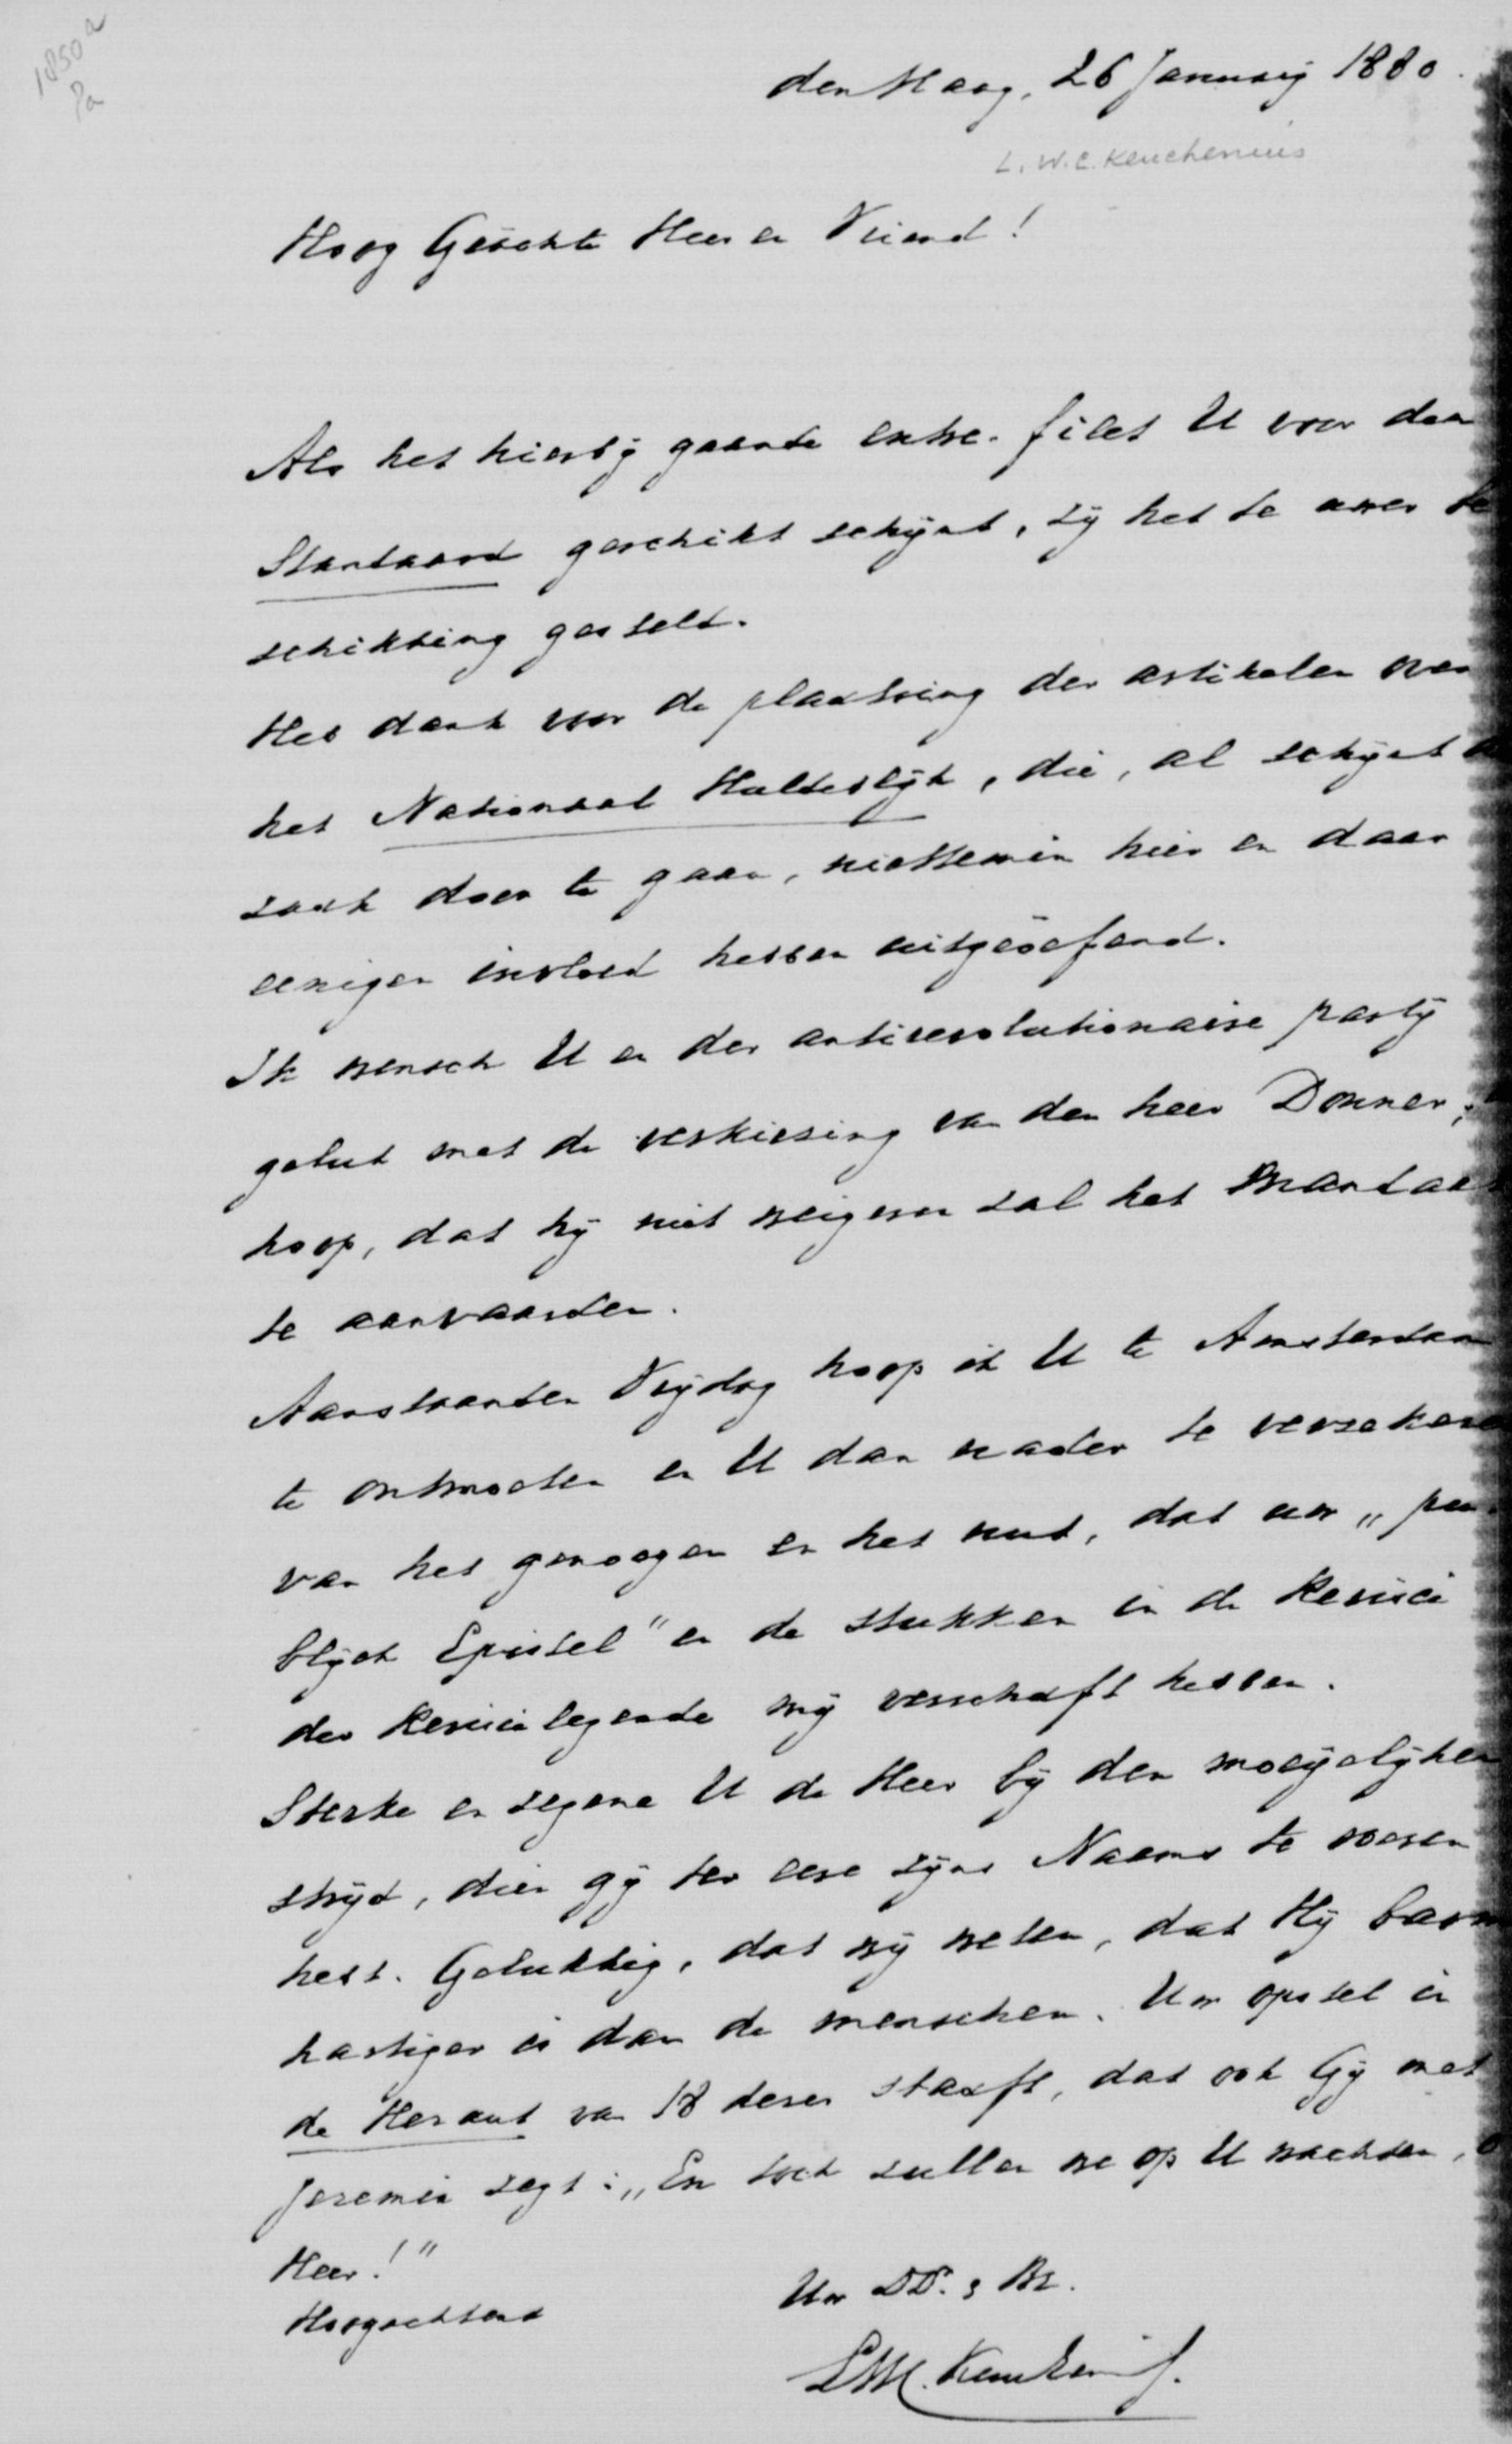 1850a
Pa
den Haag, 26 January 1880.
L.W.C. Keuchenius
Hoog Geachte Heer en Vriend!
Als het hierby gaande entre-filet U voor den
Standaard geschikt schynt, zy het te uwer be
schikking gesteld.
Heb dank voor de plaatsing der artikelen over
het Nationaal Huldeblyk, die, al schynt de
zaak door te gaan, niettemin hier en daar
eenigen invloed hebben uitgeöefend.
Ik wensch U en der antirevolutionaire party
geluk met de verkiezing van den heer Donner,
hoop, dat hy niet weigeren zal het mandaat
te aanvaarden.
Aanstaanden Vrydag hoop ik U te Amsterdam
te ontmoeten en U dan nader te verzekeren
van het genoegen en het nut, dat uw "
Epistel" en de stukken in de
der mij verschaft hebben.
Sterke en zegene U de Heer by den moeyelyken
stryd, dien gy ter eere zyns Naams te voeren
hebt. Gelukkig, dat wy weten, dat Hy barm
hartiger is dan de menschen. Uw opstel in
de Heraut van 18 dezer staaft, dat ook Gy met
Jeremia zegt: "En toch zullen we op U wachten, o
Heer!"
Hoogachtend
Uw DD. & Br.
LWC. Keuchenius.